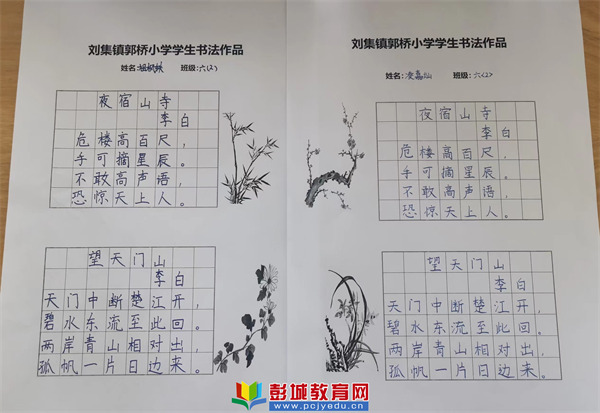 刘集镇郭桥小学学生书法作品
姓名: 班级:六(2)
夜宿山寺
李白
危楼高百尺,
手可摘星辰。
不敢高声语,
恐惊天上人。
望天门山
李白
天门中断楚江开,
碧水东流至此回。
两岸青山相对出,
孤帆一片日边来。
刘集镇郭桥小学学生书法作品
姓名: 班级:六(2)
夜宿山寺
李白
危楼高百尺,
手可摘星辰。
不敢高声语,
恐惊天上人。
望天门山
李白
天门中断楚江开,
碧水东流至此回。
两岸青山相对出,
孤帆一片日边来。
彭城教育网
www.pcjyedu.cn